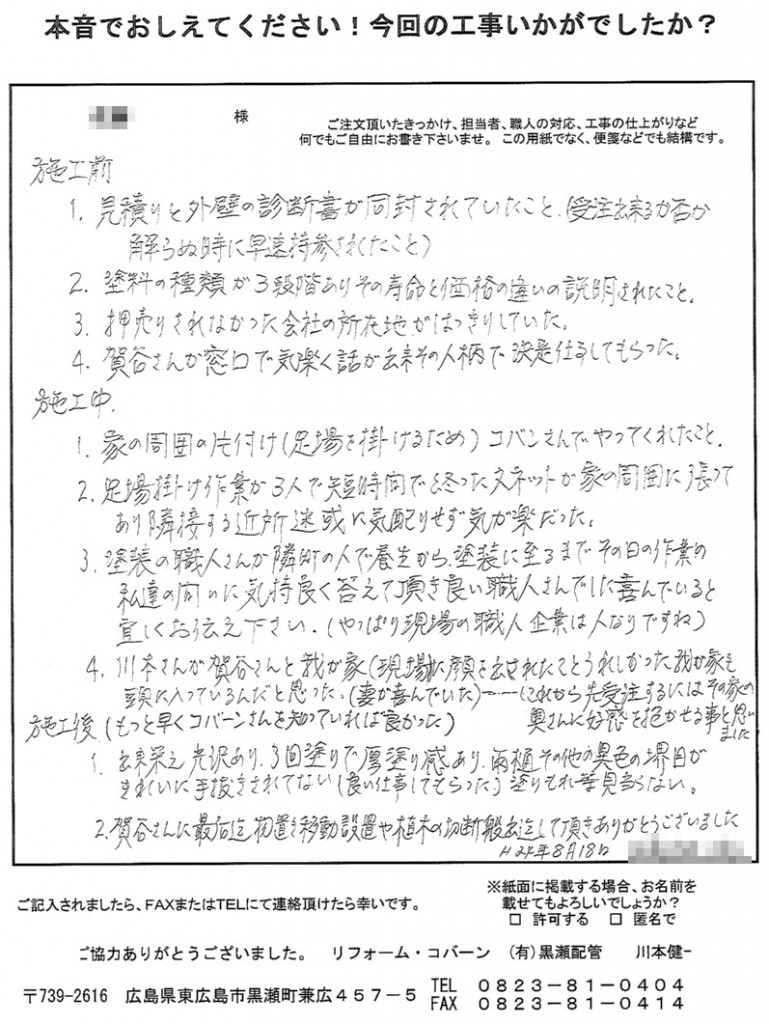 本音でおしえてください！今回の工事いかがでしたか？
様
ご注文頂いたきっかけ、担当者、職人の対応、工事の仕上がりなど
何でもご自由にお書き下さいませ。この用紙でなく、便箋などでも結構です。
施工前
1. 見積りと外壁の診断書が同封されていたこと、(受注出来るか否か
解らぬ時に早速持参されたこと)
2. 塗料の種類が3段階ありその寿命と価格の違いの説明されたこと。
3. 押売りされなかった会社の所在地がはっきりしていた。
4. 賀谷さんが窓口で気楽く話が出来その人柄で決定仕事してもらった。
施工中
1. 家の周囲の片付け(足場を掛けるため)コバンさんでやってくれたこと、
2. 足場掛け作業が3人で短時間で終った又ネットが家の周囲に張って
あり隣接する近所迷惑に気配りせず気が楽だった。
3. 塗装の職人さんが隣町の人で養生から、塗装に至るまでその日の作業の
私達の問いに気持良く答えて頂き良い職人さんでした喜んでいると
宜しくお伝え下さい。(やっぱり現場の職人 企業は人なりですね)
4. 川本さんが賀谷さんと我が家(現場)に顔を出されたことうれしかった我が家も
頭に入っているんだと思った。(妻が喜んでいた)……(これから先受注するにはその家の
奥さんに好感を抱かせる事と思いました
施工後(もっと早くコバーンさんを知っていれば良かった)
1. 出来栄え 光沢あり、3回塗りで厚塗り感あり、雨樋その他の異色の堺目が
きれいに手抜きされてない(良い仕事してもらった)塗りもれ等見当らない。
2. 賀谷さんに最后迄物置き移動設置や植木の切断搬出迄して頂きありがとうございました
H24年8月18日
ご記入されましたら、FAXまたはTELにて連絡頂けたら幸いです。
※紙面に掲載する場合、お名前を
載せてもよろしいでしょうか？
□ 許可する □ 匿名で
ご協力ありがとうございました。 リフォーム・コバーン (有)黒瀬配管 川本健一
〒739-2616 広島県東広島市黒瀬町兼広457-5 TEL 0823-81-0404
FAX 0823-81-0414